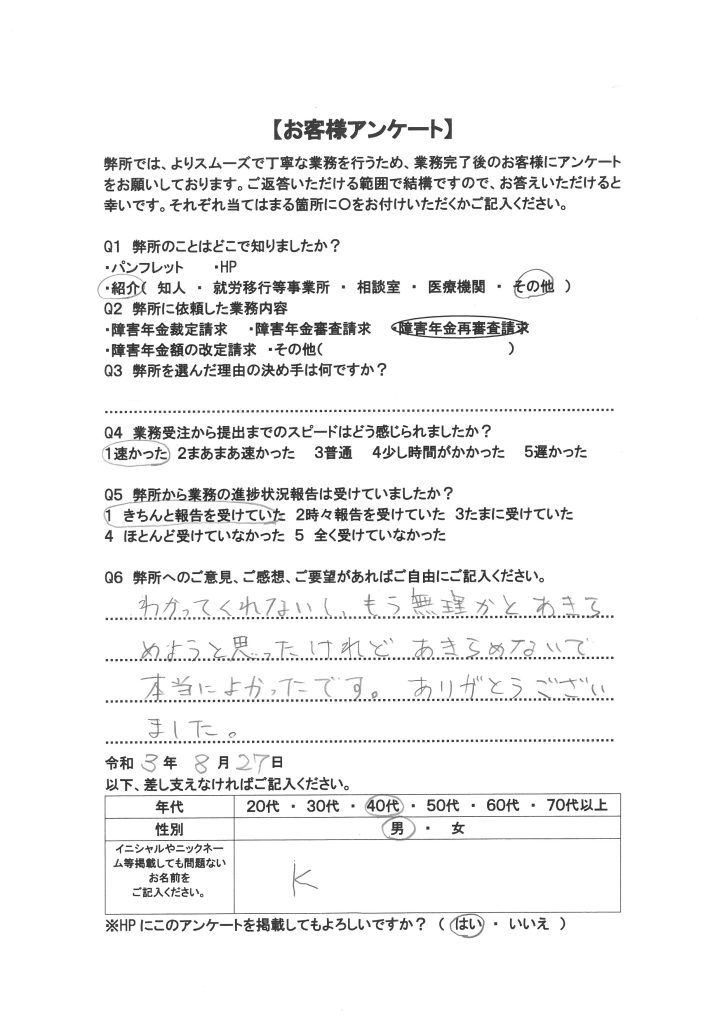 【お客様アンケート】
弊所では、よりスムーズで丁寧な業務を行うため、業務完了後のお客様にアンケート
をお願いしております。ご返答いただける範囲で結構ですので、お答えいただけると
幸いです。それぞれ当てはまる箇所に○をお付けいただくかご記入ください。
Q1 弊所のことはどこで知りましたか？
・パンフレット ・HP
・紹介( 知人 ・ 就労移行等事業所 ・ 相談室 ・ 医療機関 ・ その他 )
Q2 弊所に依頼した業務内容
・障害年金裁定請求 ・障害年金審査請求 ・障害年金再審査請求
・障害年金額の改定請求 ・その他( )
Q3 弊所を選んだ理由の決め手は何ですか？
Q4 業務受注から提出までのスピードはどう感じられましたか？
1速かった 2まあまあ速かった 3普通 4少し時間がかかった 5遅かった
Q5 弊所から業務の進捗状況報告は受けていましたか？
1 きちんと報告を受けていた 2時々報告を受けていた 3たまに受けていた
4 ほとんど受けていなかった 5 全く受けていなかった
Q6 弊所へのご意見、ご感想、ご要望があればご自由にご記入ください。
わかってくれないし、もう無理かとあきら
めようと思ったけれど あきらめないで
本当によかったです。ありがとうござい
ました。
令和 3 年 8 月 27 日
以下、差し支えなければご記入ください。
年代 20代 ・ 30代 ・ 40代 ・ 50代 ・ 60代 ・ 70代以上
性別 男 ・ 女
イニシャルやニックネー
ム等掲載しても問題ない
お名前を
ご記入ください。
K
※HPにこのアンケートを掲載してもよろしいですか？ ( はい ・ いいえ )